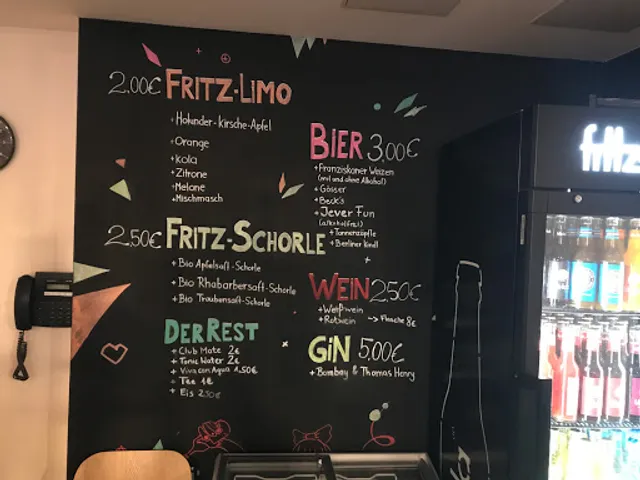 2.00€ FRITZ-LIMO
+ Holunder-Kirsche-Apfel
+ Orange
+ Kola
+ Zitrone
+ Melone
+ Mischmasch
2.50€ FRITZ-SCHORLE
+ Bio Apfelsaft-Schorle
+ Bio Rhabarbersaft-Schorle
+ Bio Traubensaft-Schorle
DER REST
+ Club Mate 2€
+ Tonic Water 2€
+ Viva con Agua 1.50€
+ Tee 1€
+ Eis 2.50€
BIER 3,00€
+ Franziskaner Weizen
(mit und ohne Alkohol)
+ Gösser
+ Beck's
+ Jever Fun
(alkoholfrei)
+ Tannenzäpfle
+ Berliner Kindl
WEIN 2,50€
+ Weißwein
+ Rotwein -> Flasche 8€
GIN 5,00€
+ Bombay & Thomas Henry
fritz